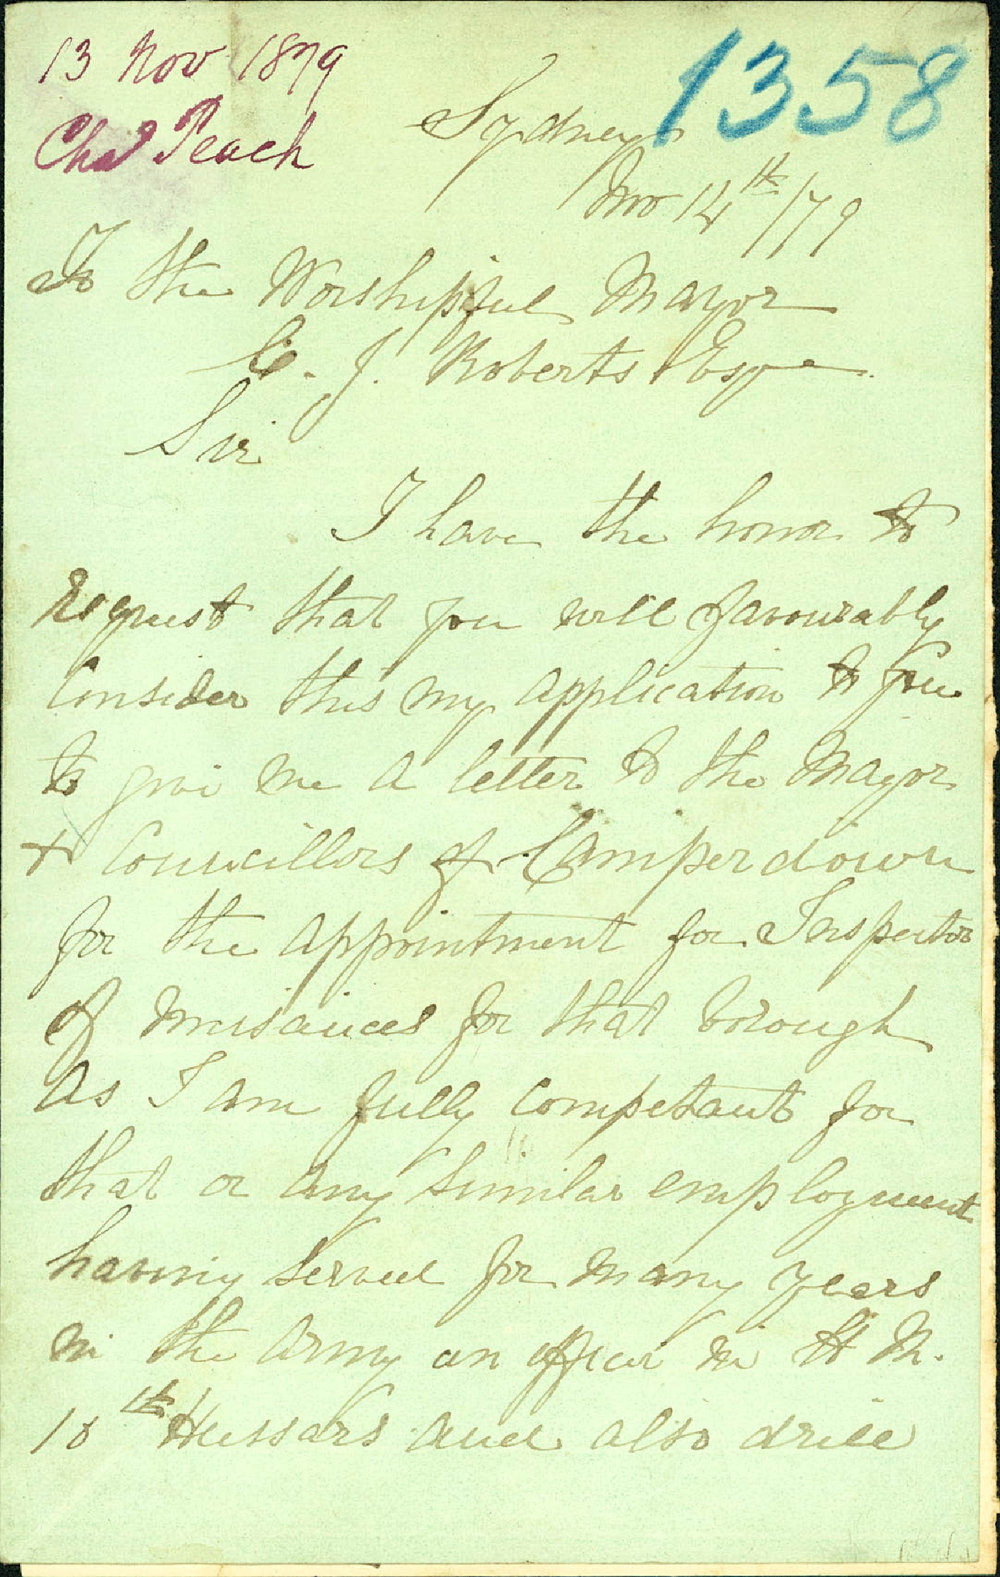 13 Nov 1879
Chas Peach
1358
Sydney
Nov 14th/79
To the Worshipful Mayor
C. J. Roberts Esqre
Sir
I have the honor to
request that you will favourably
Consider this my application to you
to give me a letter to the Mayor
& Councillors of Camperdown
for the appointment for Inspector
of nuisances for that borough
as I am fully competant for
that or any similar employment
having served for many years
in the army an officer in H M.
10th Hussars and also drill